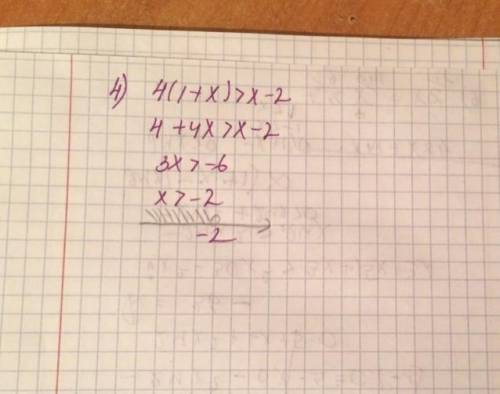 4) 4(1+x)>x-2
4+4x>x-2
3x>-6
x>-2
-2